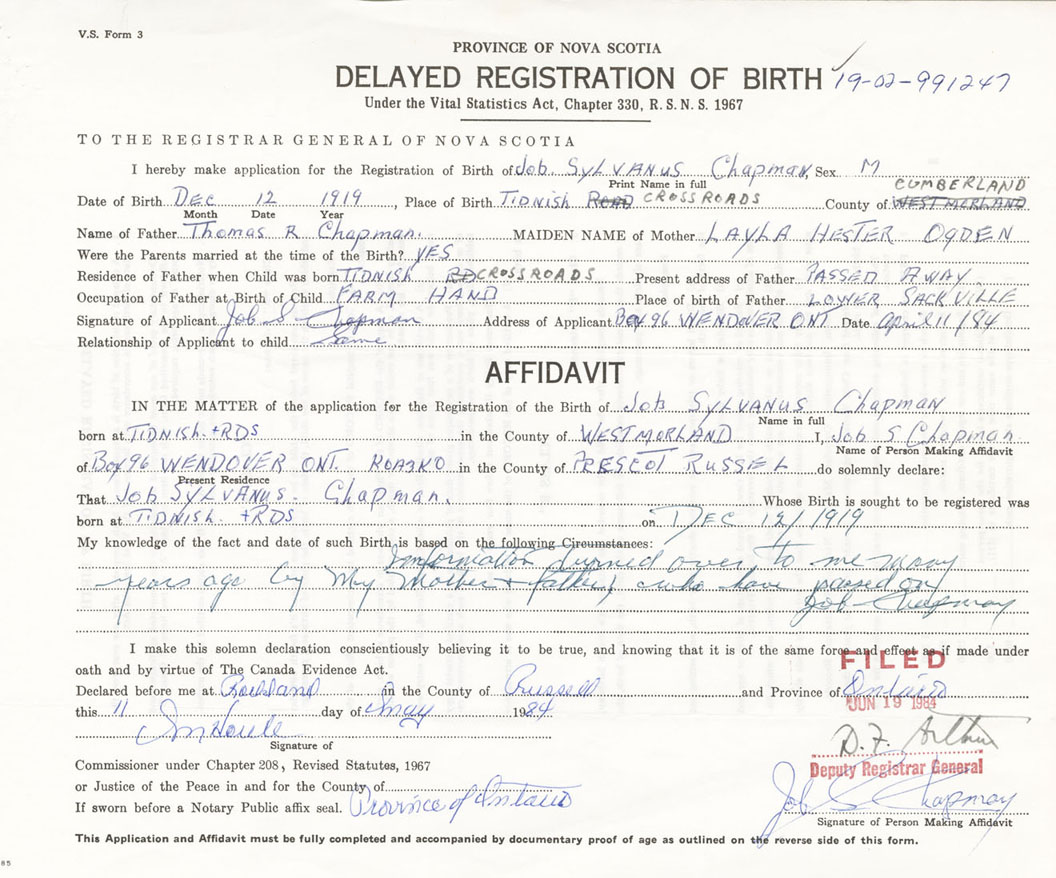 V.S. Form 3
PROVINCE OF NOVA SCOTIA
DELAYED REGISTRATION OF BIRTH 19-02-991247
Under the Vital Statistics Act, Chapter 330, R. S. N. S. 1967
TO THE REGISTRAR GENERAL OF NOVA SCOTIA
I hereby make application for the Registration of Birth of Job SYLVANUS Chapman, Sex M
Print Name in full
CUMBERLAND
Date of Birth DEC 12 1919, Place of Birth TIDNISH ROAD CROSSROADS County of WESTMORLAND
Month Date Year
Name of Father Thomas R Chapman. MAIDEN NAME of Mother LAYLA HESTER OGDEN
Were the Parents married at the time of the Birth? YES
Residence of Father when Child was born TIDNISH RD CROSSROADS Present address of Father PASSED AWAY
Occupation of Father at Birth of Child FARM HAND Place of birth of Father LOWER SACKVILLE
Signature of Applicant Job S Chapman Address of Applicant Box 96 WENDOVER ONT Date April 11/84
Relationship of Applicant to child Same
AFFIDAVIT
IN THE MATTER of the application for the Registration of the Birth of Job SYLVANUS Chapman
Name in full
born at TIDNISH. +RDS in the County of WESTMORLAND I, Job S Chapman.
Name of Person Making Affidavit
of Box 96 WENDOVER ONT. KOA3KO in the County of PRESCOT RUSSEL do solemnly declare:
Present Residence
That Job SYLVANUS. Chapman. Whose Birth is sought to be registered was
born at TIDNISH. +RDS on DEC 12/1919
My knowledge of the fact and date of such Birth is based on the following Circumstances:
Information turned over to me many
years ago by My Mother + father, who have passed on
Job Chapman
I make this solemn declaration conscientiously believing it to be true, and knowing that it is of the same force and effect as if made under
FILED
oath and by virtue of The Canada Evidence Act.
Declared before me at Rockland in the County of Russell and Province of Ontario
JUN 19 1984
this 11 day of May 1984
D. F. Arthur
Signature of
Commissioner under Chapter 208, Revised Statutes, 1967
Deputy Registrar General
or Justice of the Peace in and for the County of
If sworn before a Notary Public affix seal. Province of Ontario
Job S Chapman
Signature of Person Making Affidavit
This Application and Affidavit must be fully completed and accompanied by documentary proof of age as outlined on the reverse side of this form.
85